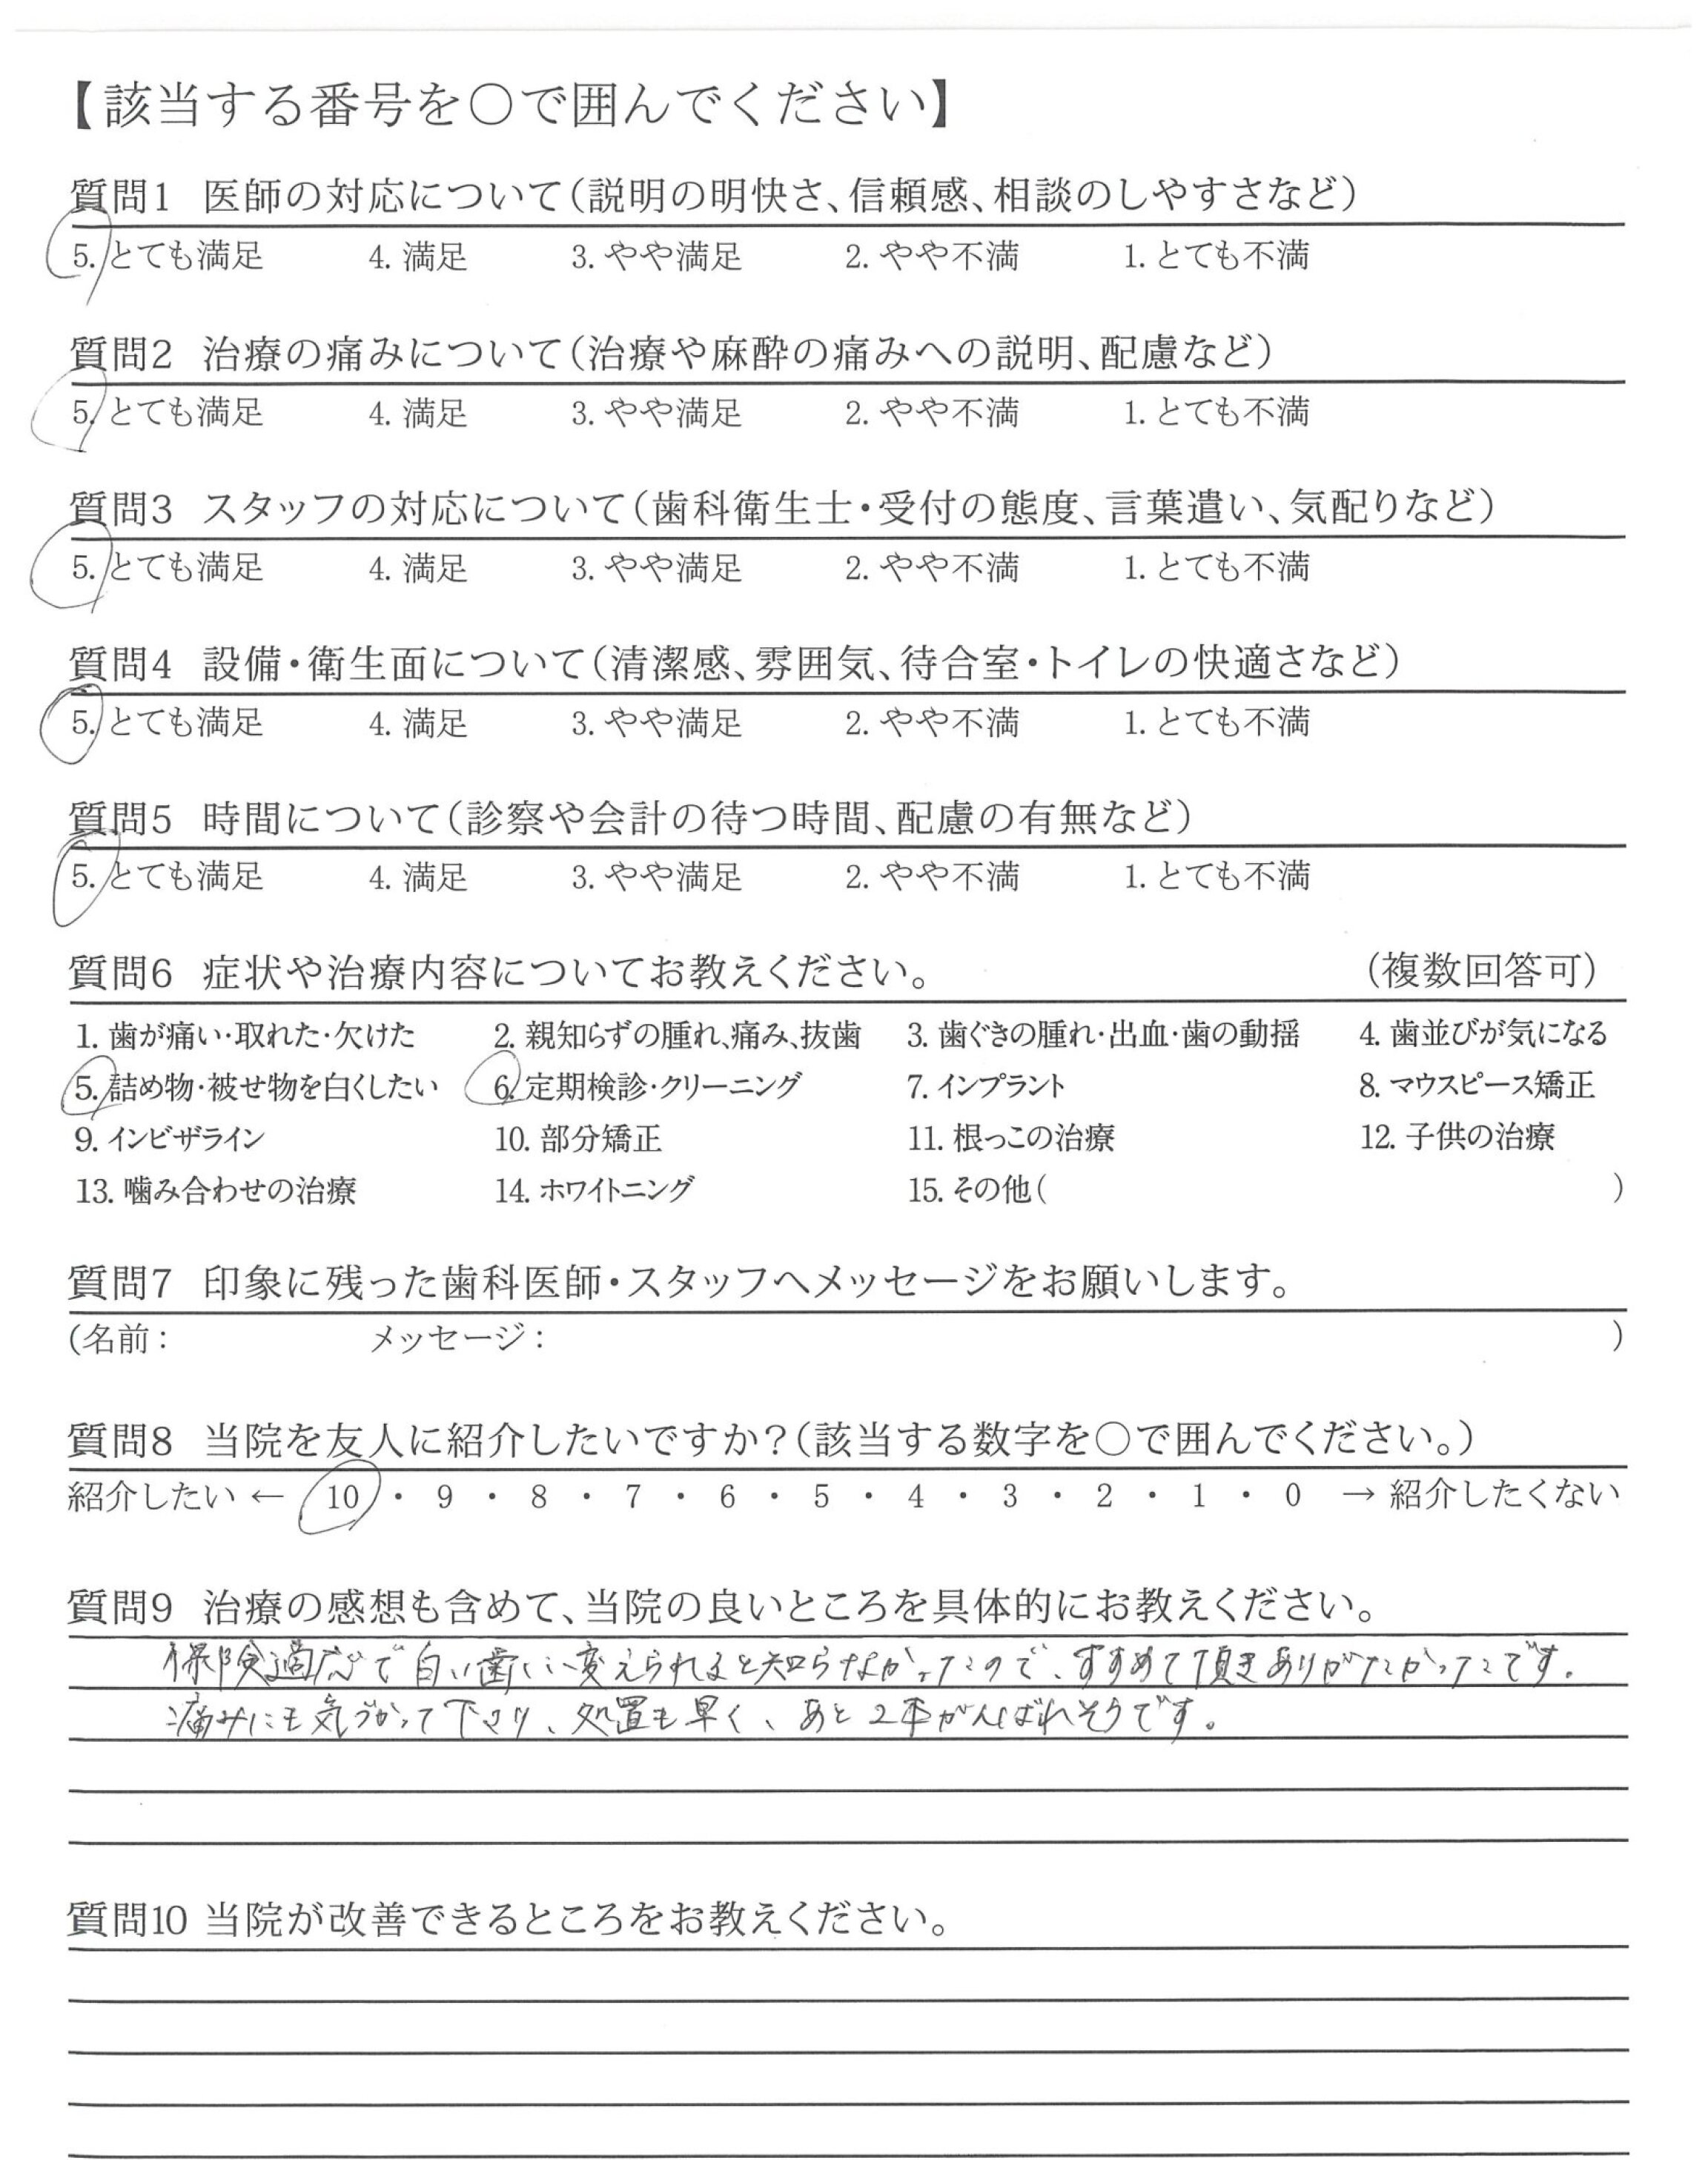 【該当する番号を〇で囲んでください】
質問1 医師の対応について(説明の明快さ、信頼感、相談のしやすさなど)
5. とても満足 4. 満足 3. やや満足 2. やや不満 1. とても不満
質問2 治療の痛みについて(治療や麻酔の痛みへの説明、配慮など)
5. とても満足 4. 満足 3. やや満足 2. やや不満 1. とても不満
質問3 スタッフの対応について(歯科衛生士・受付の態度、言葉遣い、気配りなど)
5. とても満足 4. 満足 3. やや満足 2. やや不満 1. とても不満
質問4 設備・衛生面について(清潔感、雰囲気、待合室・トイレの快適さなど)
5. とても満足 4. 満足 3. やや満足 2. やや不満 1. とても不満
質問5 時間について(診察や会計の待つ時間、配慮の有無など)
5. とても満足 4. 満足 3. やや満足 2. やや不満 1. とても不満
質問6 症状や治療内容についてお教えください。 (複数回答可)
1. 歯が痛い・取れた・欠けた 2. 親知らずの腫れ、痛み、抜歯 3. 歯ぐきの腫れ・出血・歯の動揺 4. 歯並びが気になる
5. 詰め物・被せ物を白くしたい 6. 定期検診・クリーニング 7. インプラント 8. マウスピース矯正
9. インビザライン 10. 部分矯正 11. 根っこの治療 12. 子供の治療
13. 噛み合わせの治療 14. ホワイトニング 15. その他( )
質問7 印象に残った歯科医師・スタッフへメッセージをお願いします。
(名前： メッセージ： )
質問8 当院を友人に紹介したいですか?(該当する数字を〇で囲んでください。)
紹介したい ← 10 ・ 9 ・ 8 ・ 7 ・ 6 ・ 5 ・ 4 ・ 3 ・ 2 ・ 1 ・ 0 → 紹介したくない
質問9 治療の感想も含めて、当院の良いところを具体的にお教えください。
保険適応で白い歯に変えられると知らなかったので、すすめて頂きありがたかったです。
痛みにも気づかって下さり、処置も早く、あと2本がんばれそうです。
質問10 当院が改善できるところをお教えください。